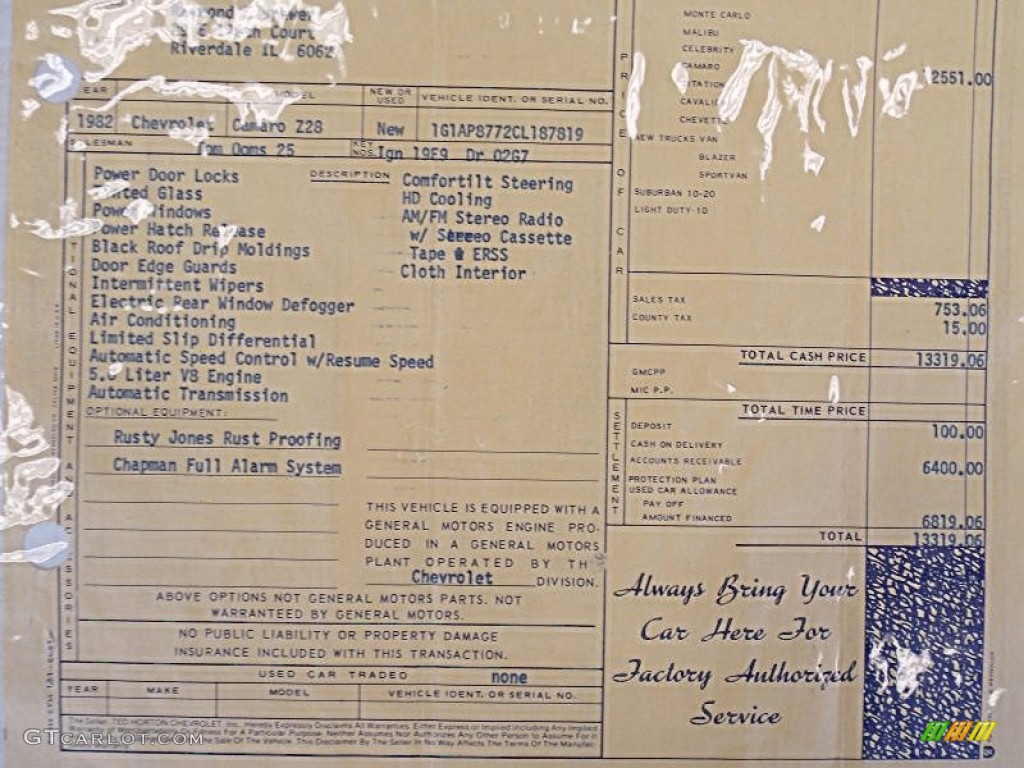 Court
Riverdale IL 6062
YEAR MODEL NEW OR USED VEHICLE IDENT. OR SERIAL NO.
1982 Chevrolet Camaro Z28 New 1G1AP8772CL187819
SALESMAN Tom Ooms 25 KEY NOS. Ign 19E9 Dr 02G7
DESCRIPTION
Power Door Locks
Tinted Glass
Power Windows
Power Hatch Release
Black Roof Drip Moldings
Door Edge Guards
Intermittent Wipers
Electric Rear Window Defogger
Air Conditioning
Limited Slip Differential
Automatic Speed Control w/Resume Speed
5.0 Liter V8 Engine
Automatic Transmission
Comfortilt Steering
HD Cooling
AM/FM Stereo Radio
w/ Stereo Cassette
Tape & ERSS
Cloth Interior
OPTIONAL EQUIPMENT:
Rusty Jones Rust Proofing
Chapman Full Alarm System
OPTIONAL EQUIPMENT AND ACCESSORIES
THIS VEHICLE IS EQUIPPED WITH A
GENERAL MOTORS ENGINE PRO-
DUCED IN A GENERAL MOTORS
PLANT OPERATED BY TH
Chevrolet DIVISION.
ABOVE OPTIONS NOT GENERAL MOTORS PARTS. NOT
WARRANTEED BY GENERAL MOTORS.
NO PUBLIC LIABILITY OR PROPERTY DAMAGE
INSURANCE INCLUDED WITH THIS TRANSACTION.
USED CAR TRADED none
YEAR MAKE MODEL VEHICLE IDENT. OR SERIAL NO.
The Seller, TED HORTON CHEVROLET, Inc., Hereby Expressly Disclaims All Warranties, Either Express or Implied Including Any Implied
For A Particular Purpose. Neither Assumes Nor Authorizes Any Other Person To Assume For It
the Sale Of The Vehicle. This Disclaimer By The Seller In No Way Affects The Terms Of The Manufac
PRICE OF CAR
MONTE CARLO
MALIBU
CELEBRITY
CAMARO
CITATION 12551.00
CAVALIER
CHEVETTE
NEW TRUCKS VAN
BLAZER
SPORTVAN
SUBURBAN 10-20
LIGHT DUTY-10
SALES TAX 753.06
COUNTY TAX 15.00
TOTAL CASH PRICE 13319.06
GMCPP
MIC P.P.
TOTAL TIME PRICE
SETTLEMENT
DEPOSIT 100.00
CASH ON DELIVERY
ACCOUNTS RECEIVABLE 6400.00
PROTECTION PLAN
USED CAR ALLOWANCE
PAY OFF
AMOUNT FINANCED 6819.06
TOTAL 13319.06
Always Bring Your
Car Here For
Factory Authorized
Service
GTcarlot.com